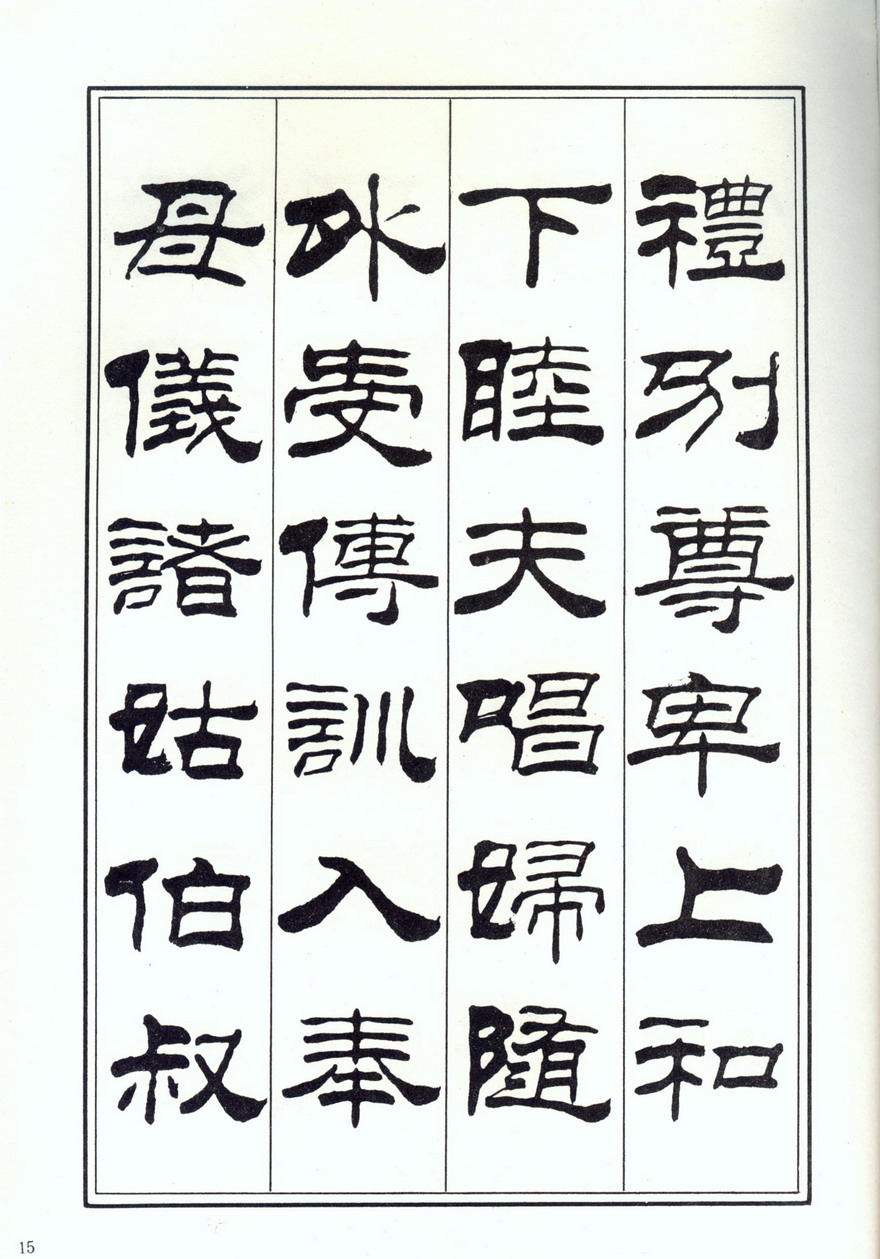 禮別尊卑上和
下睦夫唱婦隨
外受傅訓入奉
母儀諸姑伯叔
15